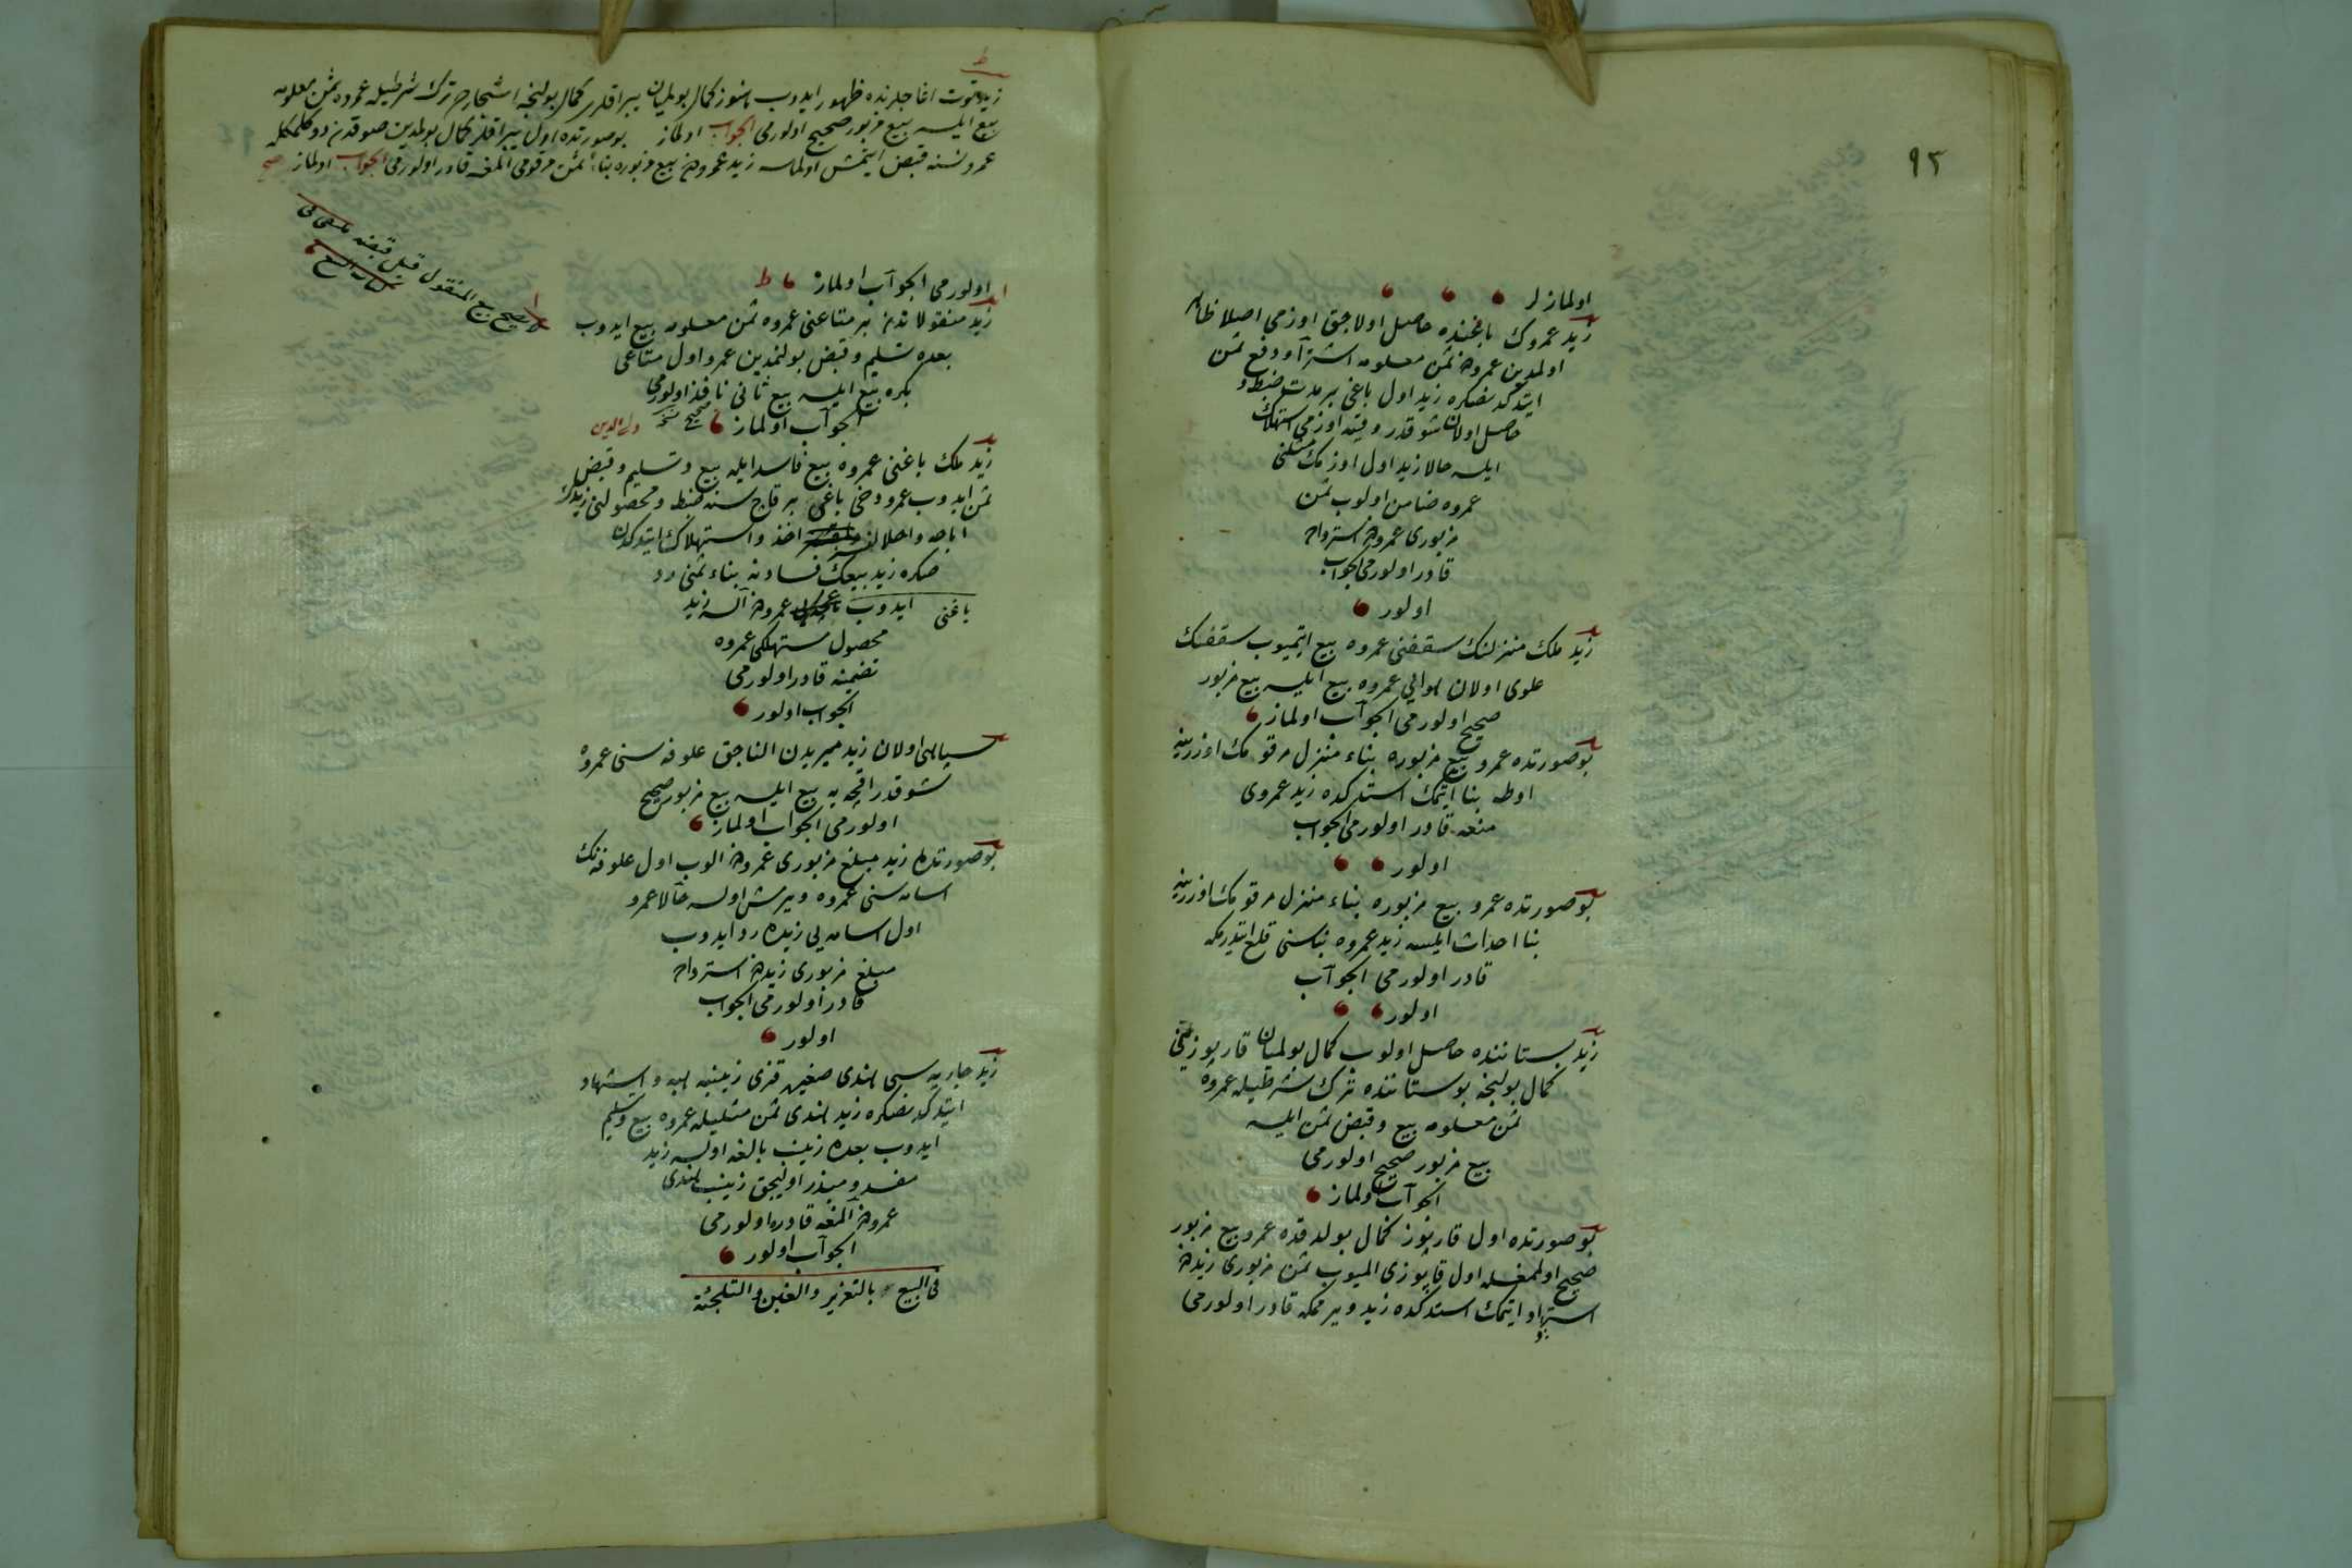 ٩٣
اولمازلر
زيد عمروك باغنده حاصل اولاجق اوزمى اصلا ظاهر
اولمدين عمرودن ثمن معلومه اشترا و دفع ثمن
ايتدكدنصكره زيد اول باغى بر مدت ضبط و
حاصل اولان شو قدر وقيه اوزمى استهلاك
ايلسه حالا زيد اول اوزمك مثلنى
عمروه ضامن اولوب ثمن
مزبورى عمرودن استرداده
قادر اولورمى الجواب
اولور
زيد ملك منزلنك سقفنى عمروه بيع ايتميوب سقفنك
علوى اولان هوايى عمروه بيع ايلسه بيع مزبور
صحيح اولورمى الجواب اولماز
بو صورتده عمرو بيع مزبوره بناء منزل مرقومك اوزرينه
اوطه بنا ايتمك استدكده زيد عمروى
منعه قادر اولورمى الجواب
اولور
بو صورتده عمرو بيع مزبوره بناء منزل مرقومك اوزرينه
بنا احداث ايلسه زيد عمروه بناسنى قلع ايتدرمكه
قادر اولورمى الجواب
اولور
زيد بستاننده حاصل اولوب كمال بولميان قارپوزينى
كمال بولنجه بوستاننده ترك شرطيله عمروه
ثمن معلومه بيع و قبض ثمن ايلسه
بيع مزبور صحيح اولورمى
الجواب اولماز
بو صورتده اول قارپوز كمال بولدقده عمرو بيع مزبور
صحيح اولمغله اول قارپوزى الميوب ثمن مزبورى زيددن
استرداد ايتمك استدكده زيد ويرمكه قادر اولورمى
ط
زيد توت اغاجلرنده ظهور ايدوب هنوز كمال بولميان يپراقلرى كمال بولنجه اشجارده ترك شرطيله عمروه ثمن معلومه
بيع ايلسه بيع مزبور صحيح اولورمى الجواب اولماز بو صورتده اول يپراقلر كمال بولمدين صوقدن دوكلمكله
عمرو نسنه قبض ايتمش اولماسه زيد عمرودن بيع مزبوره بناء ثمن مرقومى المغه قادر اولورمى الجواب اولماز صح
لا يصح بيع المنقول قبل قبضه
اولورمى الجواب اولماز ط
زيد منقولاتدن بر متاعنى عمروه ثمن معلومه بيع ايدوب
بعده تسليم و قبض بولنمدين عمرو اول متاعى
بكره بيع ايلسه بيع ثانى نافذ اولورمى
الجواب اولماز
زيد ملك باغنى عمروه بيع فاسد ايله بيع و تسليم و قبض
ثمن ايدوب عمرو دخى باغى بر قاج سنه ضبط و محصولنى زيدك
اباحه و احلالنسز اخذ و استهلاك ايتدكدن
صكره زيد بيعك فسادنه بناء ثمنى رد
ايدوب باغنى عمرودن آلسه زيد
محصول مستهلكى عمروه
تضمينه قادر اولورمى
الجواب اولور
سپاهى اولان زيد ميريدن الناجق علوفه سنى عمروه
شو قدر اقچه يه بيع ايلسه بيع مزبور صحيح
اولورمى الجواب اولماز
بو صورتده زيد مبلغ مزبورى عمرودن الوب اول علوفه نك
اسامه سنى عمروه ويرمش اولسه حالا عمرو
اول اسامه يى زيده رد ايدوب
مبلغ مزبورى زيددن استرداده
قادر اولورمى الجواب
اولور
زيد جاريه سى هندى صغيره قزى زينبه هبه و اشهاد
ايتدكدنصكره زيد هندى ثمن مثليله عمروه بيع و تسليم
ايدوب بعده زينب بالغه اولسه زيد
مفسد و مبذر اوليجق زينب هندى
عمرودن المغه قادره اولورمى
الجواب اولور
فى البيع بالتغرير والغبن والتلجئة